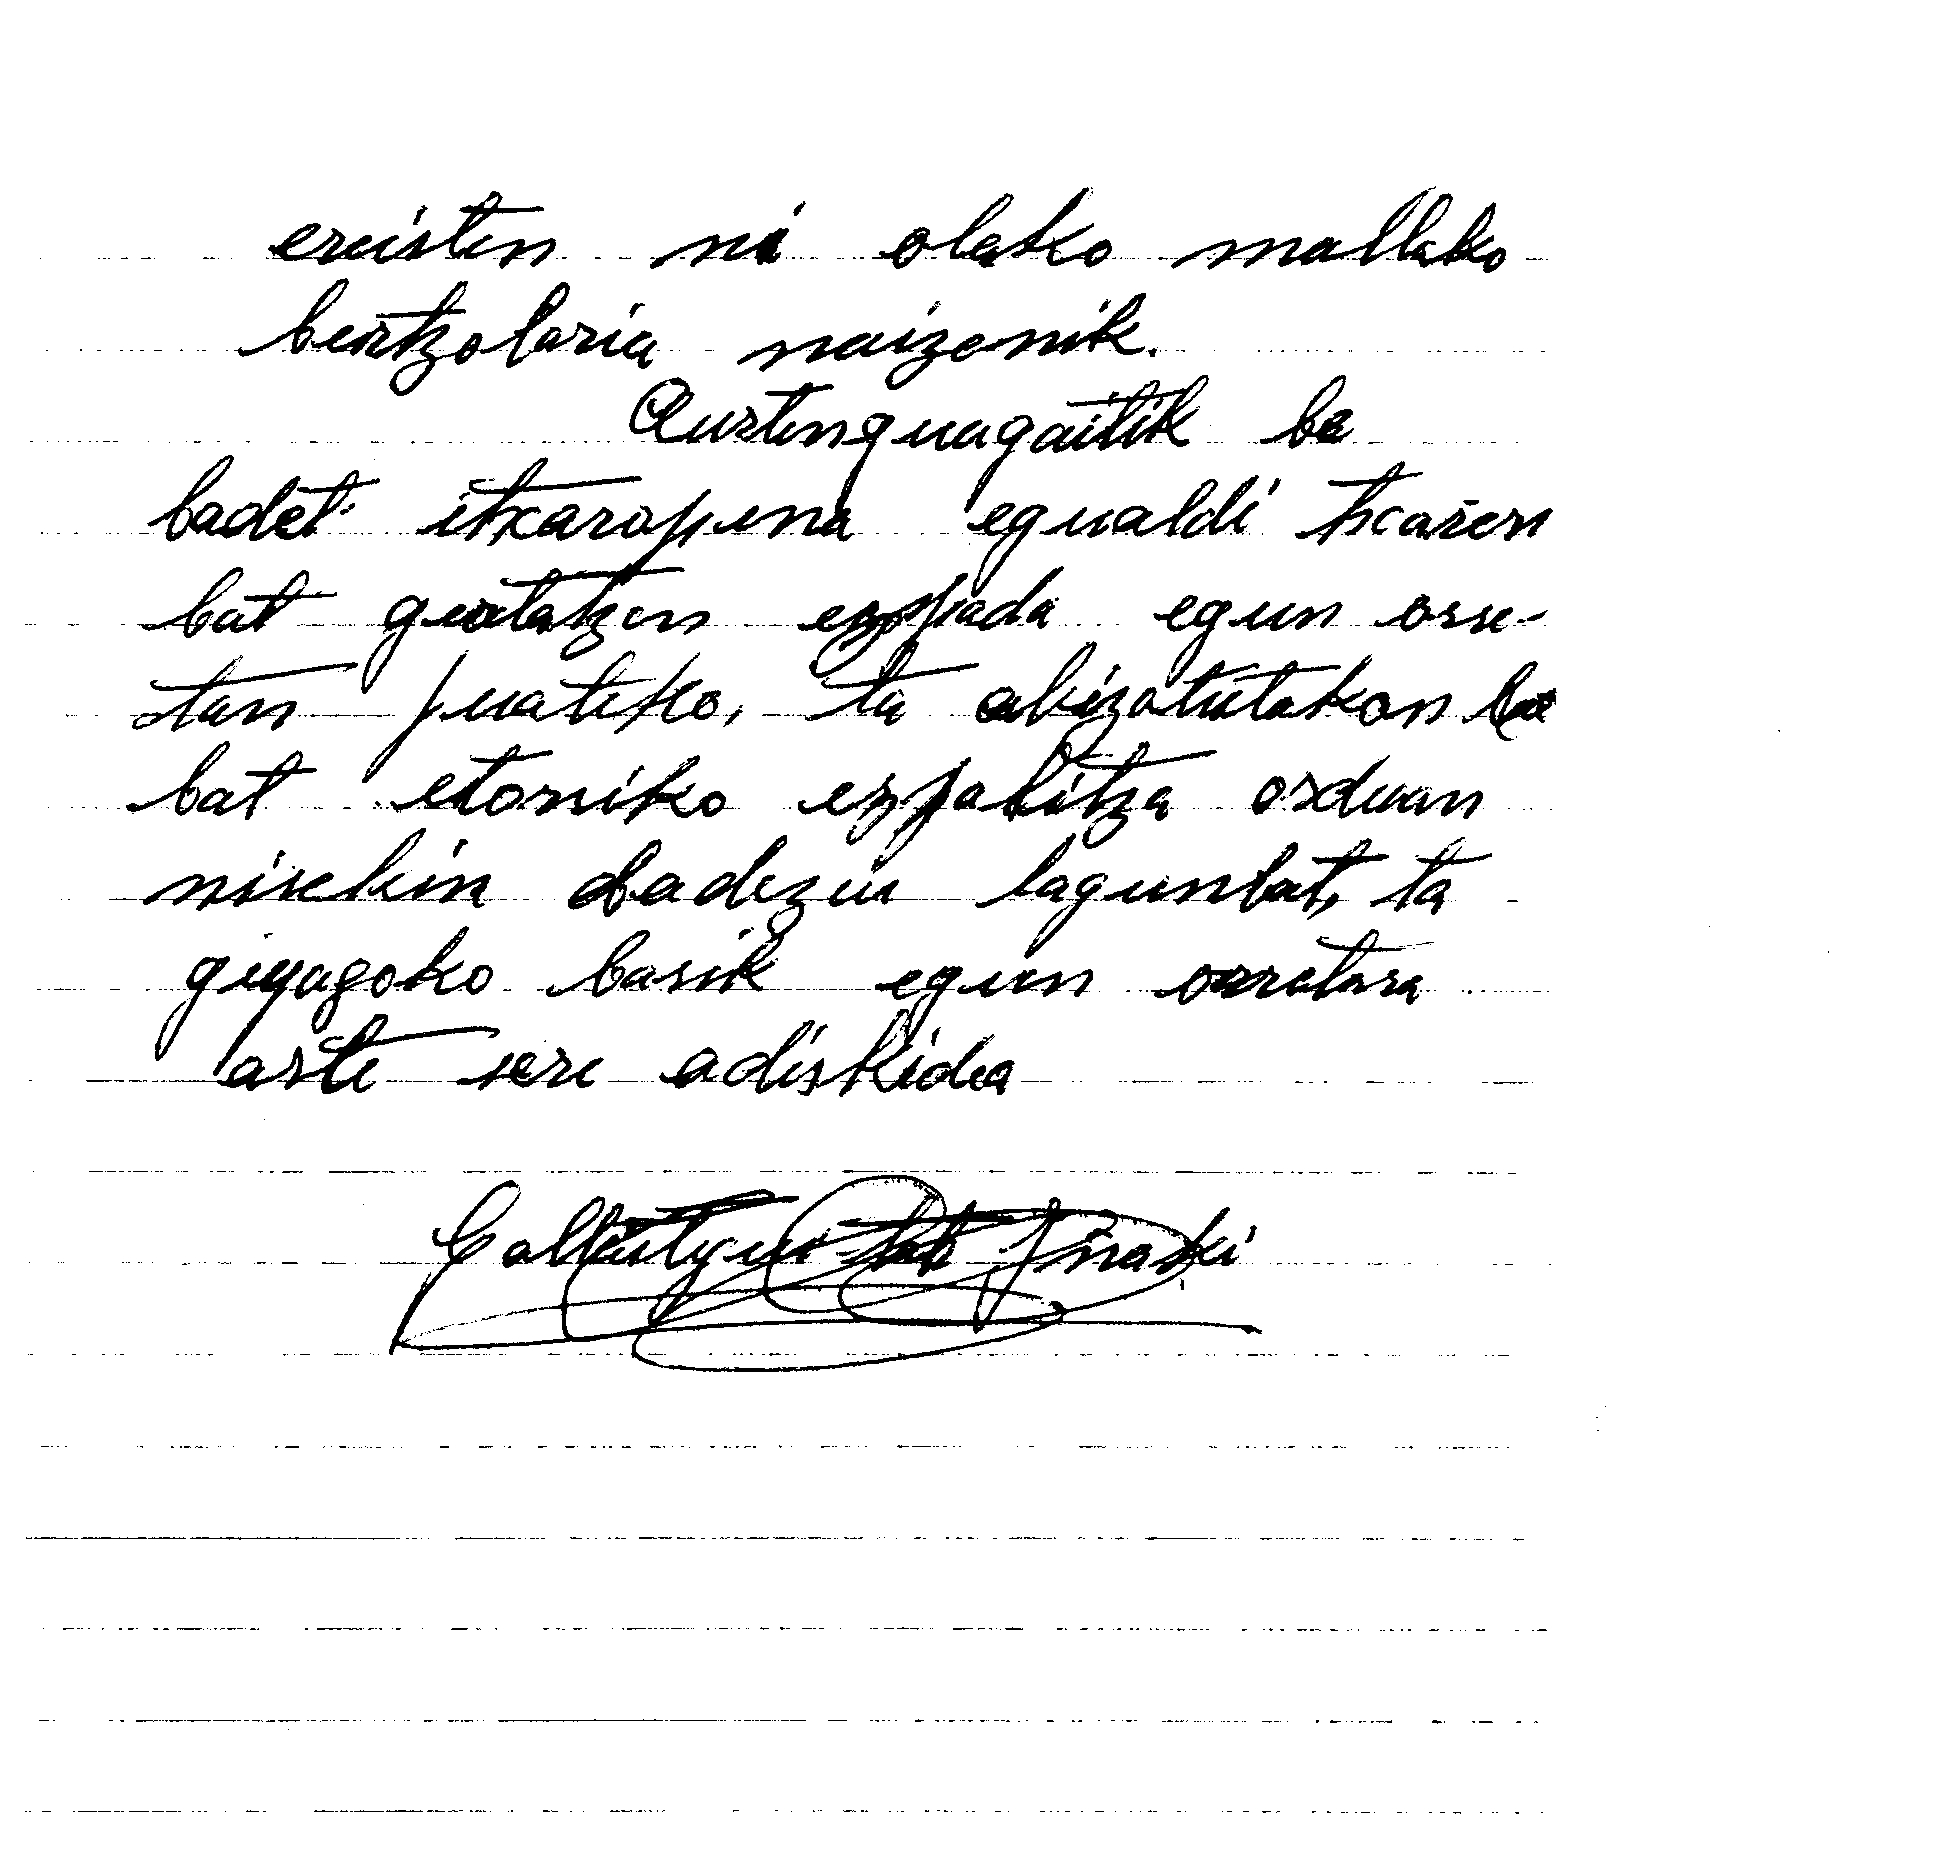 ereisten ni olako mallako
bertzolaria naizenik.
Aurtenguagaitik be
badet itxaropena egualdi txaŕen
bat guatatzen ezpada egun orre-
tan juateko, ta abizatutakon
bat etorriko ezpalitza orduan
nirekin badezu lagunbat, ta
geiyagoko barik egun orretara
arte zere adiskidea
Iñaki